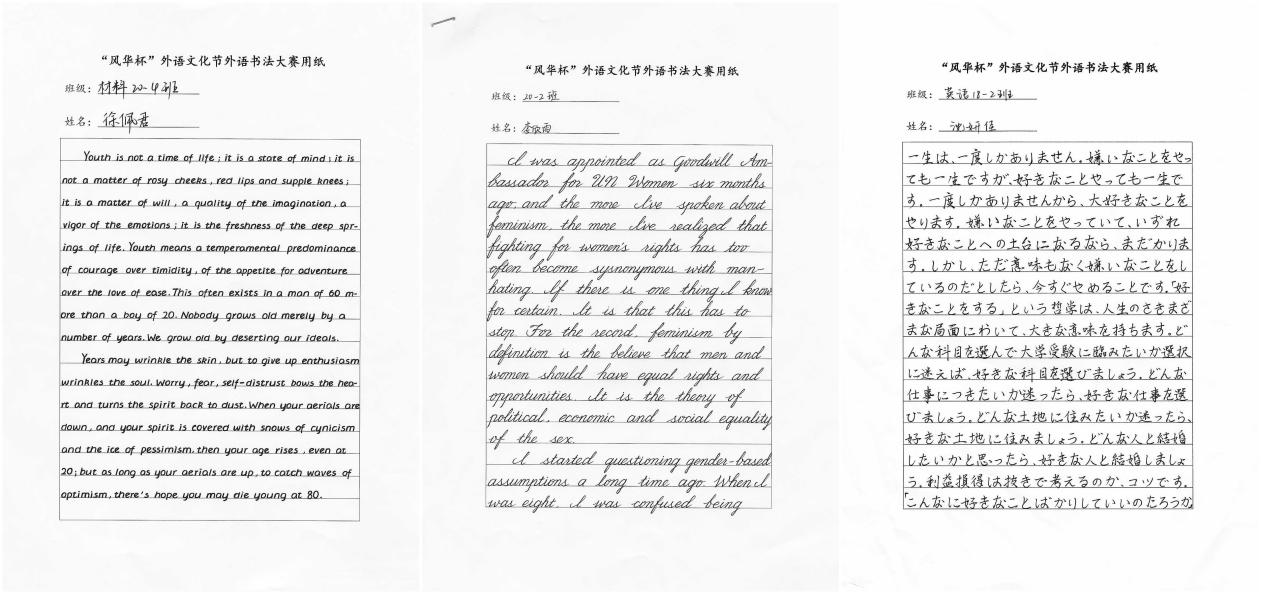 “风华杯”外语文化节外语书法大赛用纸
班级：材料20-4班
姓名：徐佩君
Youth is not a time of life; it is a state of mind; it is
not a matter of rosy cheeks, red lips and supple knees;
it is a matter of will, a quality of the imagination, a
vigor of the emotions; it is the freshness of the deep spr-
ings of life. Youth means a temperamental predominance
of courage over timidity, of the appetite for adventure
over the love of ease. This often exists in a man of 60 m-
ore than a boy of 20. Nobody grows old merely by a
number of years. We grow old by deserting our ideals.
Years may wrinkle the skin, but to give up enthusiasm
wrinkles the soul. Worry, fear, self-distrust bows the hea-
rt and turns the spirit back to dust. When your aerials are
down, and your spirit is covered with snows of cynicism
and the ice of pessimism, then your age rises, even at
20; but as long as your aerials are up, to catch waves of
optimism, there's hope you may die young at 80.
“风华杯”外语文化节外语书法大赛用纸
班级：20-2班
姓名：李欣雨
I was appointed as Goodwill Am-
bassador for UN Women six months
ago, and the more I've spoken about
feminism, the more I've realized that
fighting for women's rights has too
often become sysnonymous with man-
hating. If there is one thing I know
for certain. It is that this has to
stop. For the record, feminism by
definition is the believe that men and
women should have equal rights and
opportunities. It is the theory of
political, economic and social equality
of the sex.
I started questioning gender-based
assumptions a long time ago. When I
was eight, I was confused being
“风华杯”外语文化节外语书法大赛用纸
班级：英语18-2班
姓名：池妍佳
一生は、一度しかありません。嫌いなことをやっ
ても一生ですが、好きなことやっても一生で
す。一度しかありませんから、大好きなことを
やります。嫌いなことをやっていて、いずれ
好きなことへの土台になるなら、まだかりま
す。しかし、ただ意味もなく嫌いなことをし
ているのだとしたら、今すぐやめることです。「好
きなことをする」という哲学は、人生のさきまざ
まな局面において、大きな意味を持ちます。ど
んな科目を選んで大学受験に臨みたいか選択
に迷えば、好きな科目を選びましょう。どんな
仕事につきたいか迷ったら、好きな仕事を選
びましょう。どんな土地に住みたいか迷ったら、
好きな土地に住みましょう。どんな人と結婚
したいかと思ったら、好きな人と結婚しましょ
う。利益損得は抜きで考えるのが、コツです。
「こんなに好きなことばかりしていいのたろうか